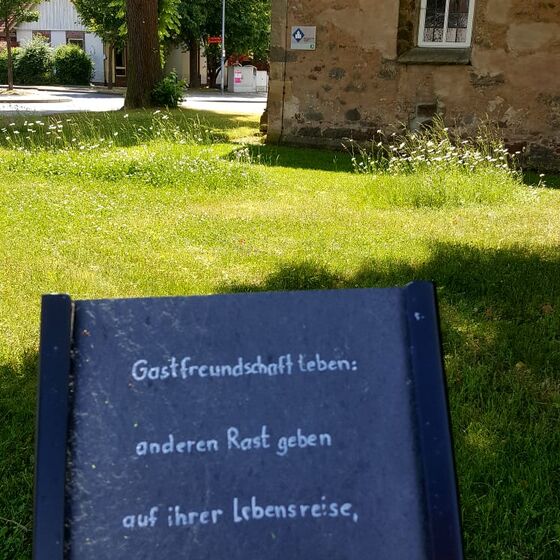 Gastfreundschaft leben:
anderen Rast geben
auf ihrer Lebensreise,